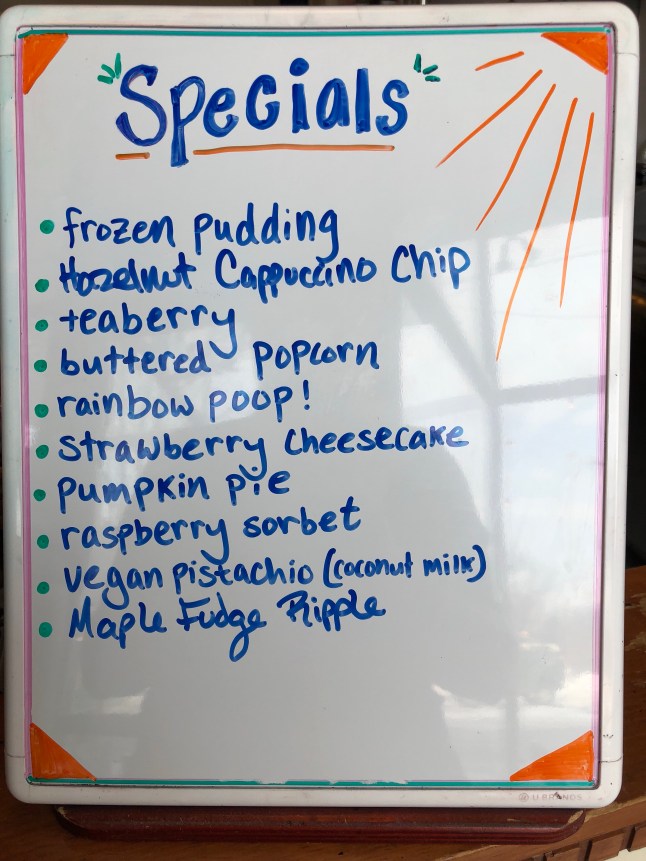 Specials
• frozen pudding
• Hazelnut Cappuccino Chip
• teaberry
• buttered popcorn
• rainbow poop!
• strawberry cheesecake
• pumpkin pie
• raspberry sorbet
• vegan pistachio (coconut milk)
• Maple Fudge Ripple
U BRANDS